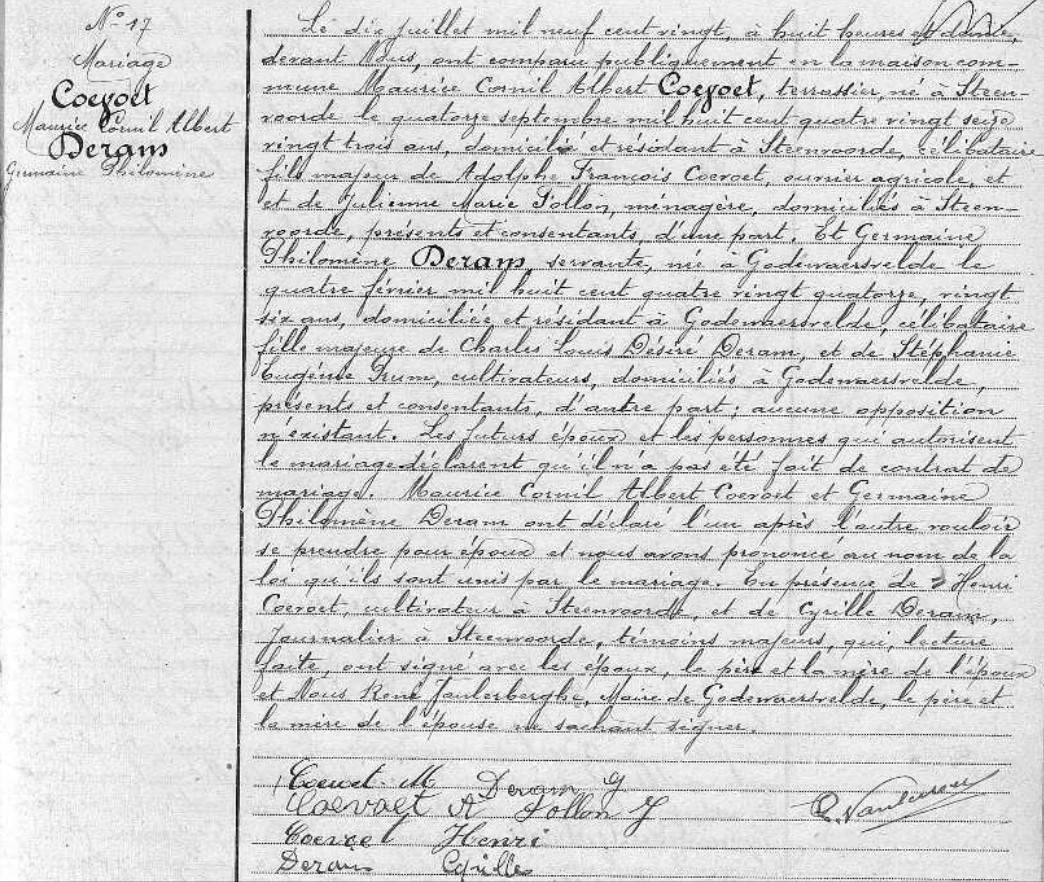 N° 17
Mariage
Coevoet
Maurice Cornil Albert
Deram
Germaine Philomène
Le dix juillet mil neuf cent vingt, à huit heures et demie,
devant Nous, ont comparu publiquement en la maison com-
mune Maurice Cornil Albert Coevoet, terrassier, né à Steen-
voorde le quatorze septembre mil huit cent quatre vingt seize
vingt trois ans, domicilié et résidant à Steenvoorde, célibataire
fils majeur de Adolphe François Coevoet, ouvrier agricole, et
et de Julienne Marie Pollon, ménagère, domiciliés à Steen-
voorde, présents et consentants, d'une part. Et Germaine
Philomène Deram, servante, née à Godewaersvelde le
quatre février mil huit cent quatre vingt quatorze, vingt
six ans, domiciliée et résidant à Godewaersvelde, célibataire
fille majeure de Charles Louis Désiré Deram, et de Stéphanie
Eugénie Prum, cultivateurs, domiciliés à Godewaersvelde,
présents et consentants, d'autre part; aucune opposition
n'existant. Les futurs époux et les personnes qui autorisent
le mariage déclarent qu'il n'a pas été fait de contrat de
mariage. Maurice Cornil Albert Coevoet et Germaine
Philomène Deram ont déclaré l'un après l'autre vouloir
se prendre pour époux et nous avons prononcé au nom de la
loi qu'ils sont unis par le mariage. En présence de Henri
Coevoet, cultivateur à Steenvoorde, et de Cyrille Deram,
Journalier à Steenvoorde, témoins majeurs, qui, lecture
faite, ont signé avec les époux, le père et la mère de l'époux
et Nous René Vaulerberghe, Maire de Godewaersvelde, le père et
la mère de l'épouse ne sachant signer.
Coevoet M Deram G
Coevoet A Pollon J
Coevoet Henri
Deram Cyrille